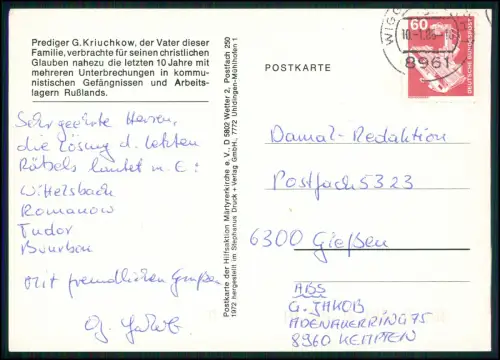 Prediger G. Kriuchkow, der Vater dieser
Familie, verbrachte für seinen christlichen
Glauben nahezu die letzten 10 Jahre mit
mehreren Unterbrechungen in kommu-
nistischen Gefängnissen und Arbeits-
lagern Rußlands.
Sehr geehrte Herren,
die Lösung d. letzten
Rätsels lautet m. E.:
Wittelsbach
Romanow
Tudor
Bourbon
Mit freundlichen Grüßen
G. Jakob
Postkarte der Hilfsaktion Märtyrerkirche e. V., D 5802 Wetter 2, Postfach 250
1972 hergestellt im Stephanus Druck + Verlag GmbH., 7772 Uhldingen-Mühlhofen 1
POSTKARTE
10.-1.86
8961
60
DEUTSCHE BUNDESPOST
Damal-Redaktion
Postfach 5323
6300 Gießen
ABS
G. JAKOB
ADENAUERRING 75
8960 KEMPTEN